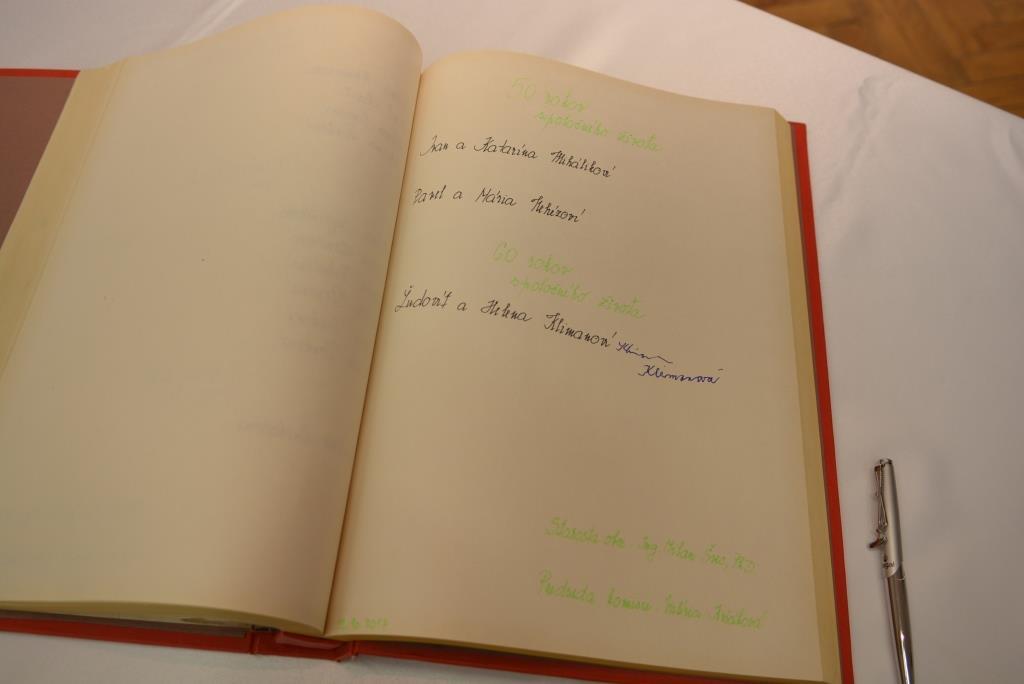 50 rokov
spoločného života
Ivan a Katarína Mihálikoví
Pavel a Mária
60 rokov
spoločného života
Ľudovít a Helena Klimanoví
Klimanová
Starosta obce Ing Milan PhD.
Predseda komisie
2017